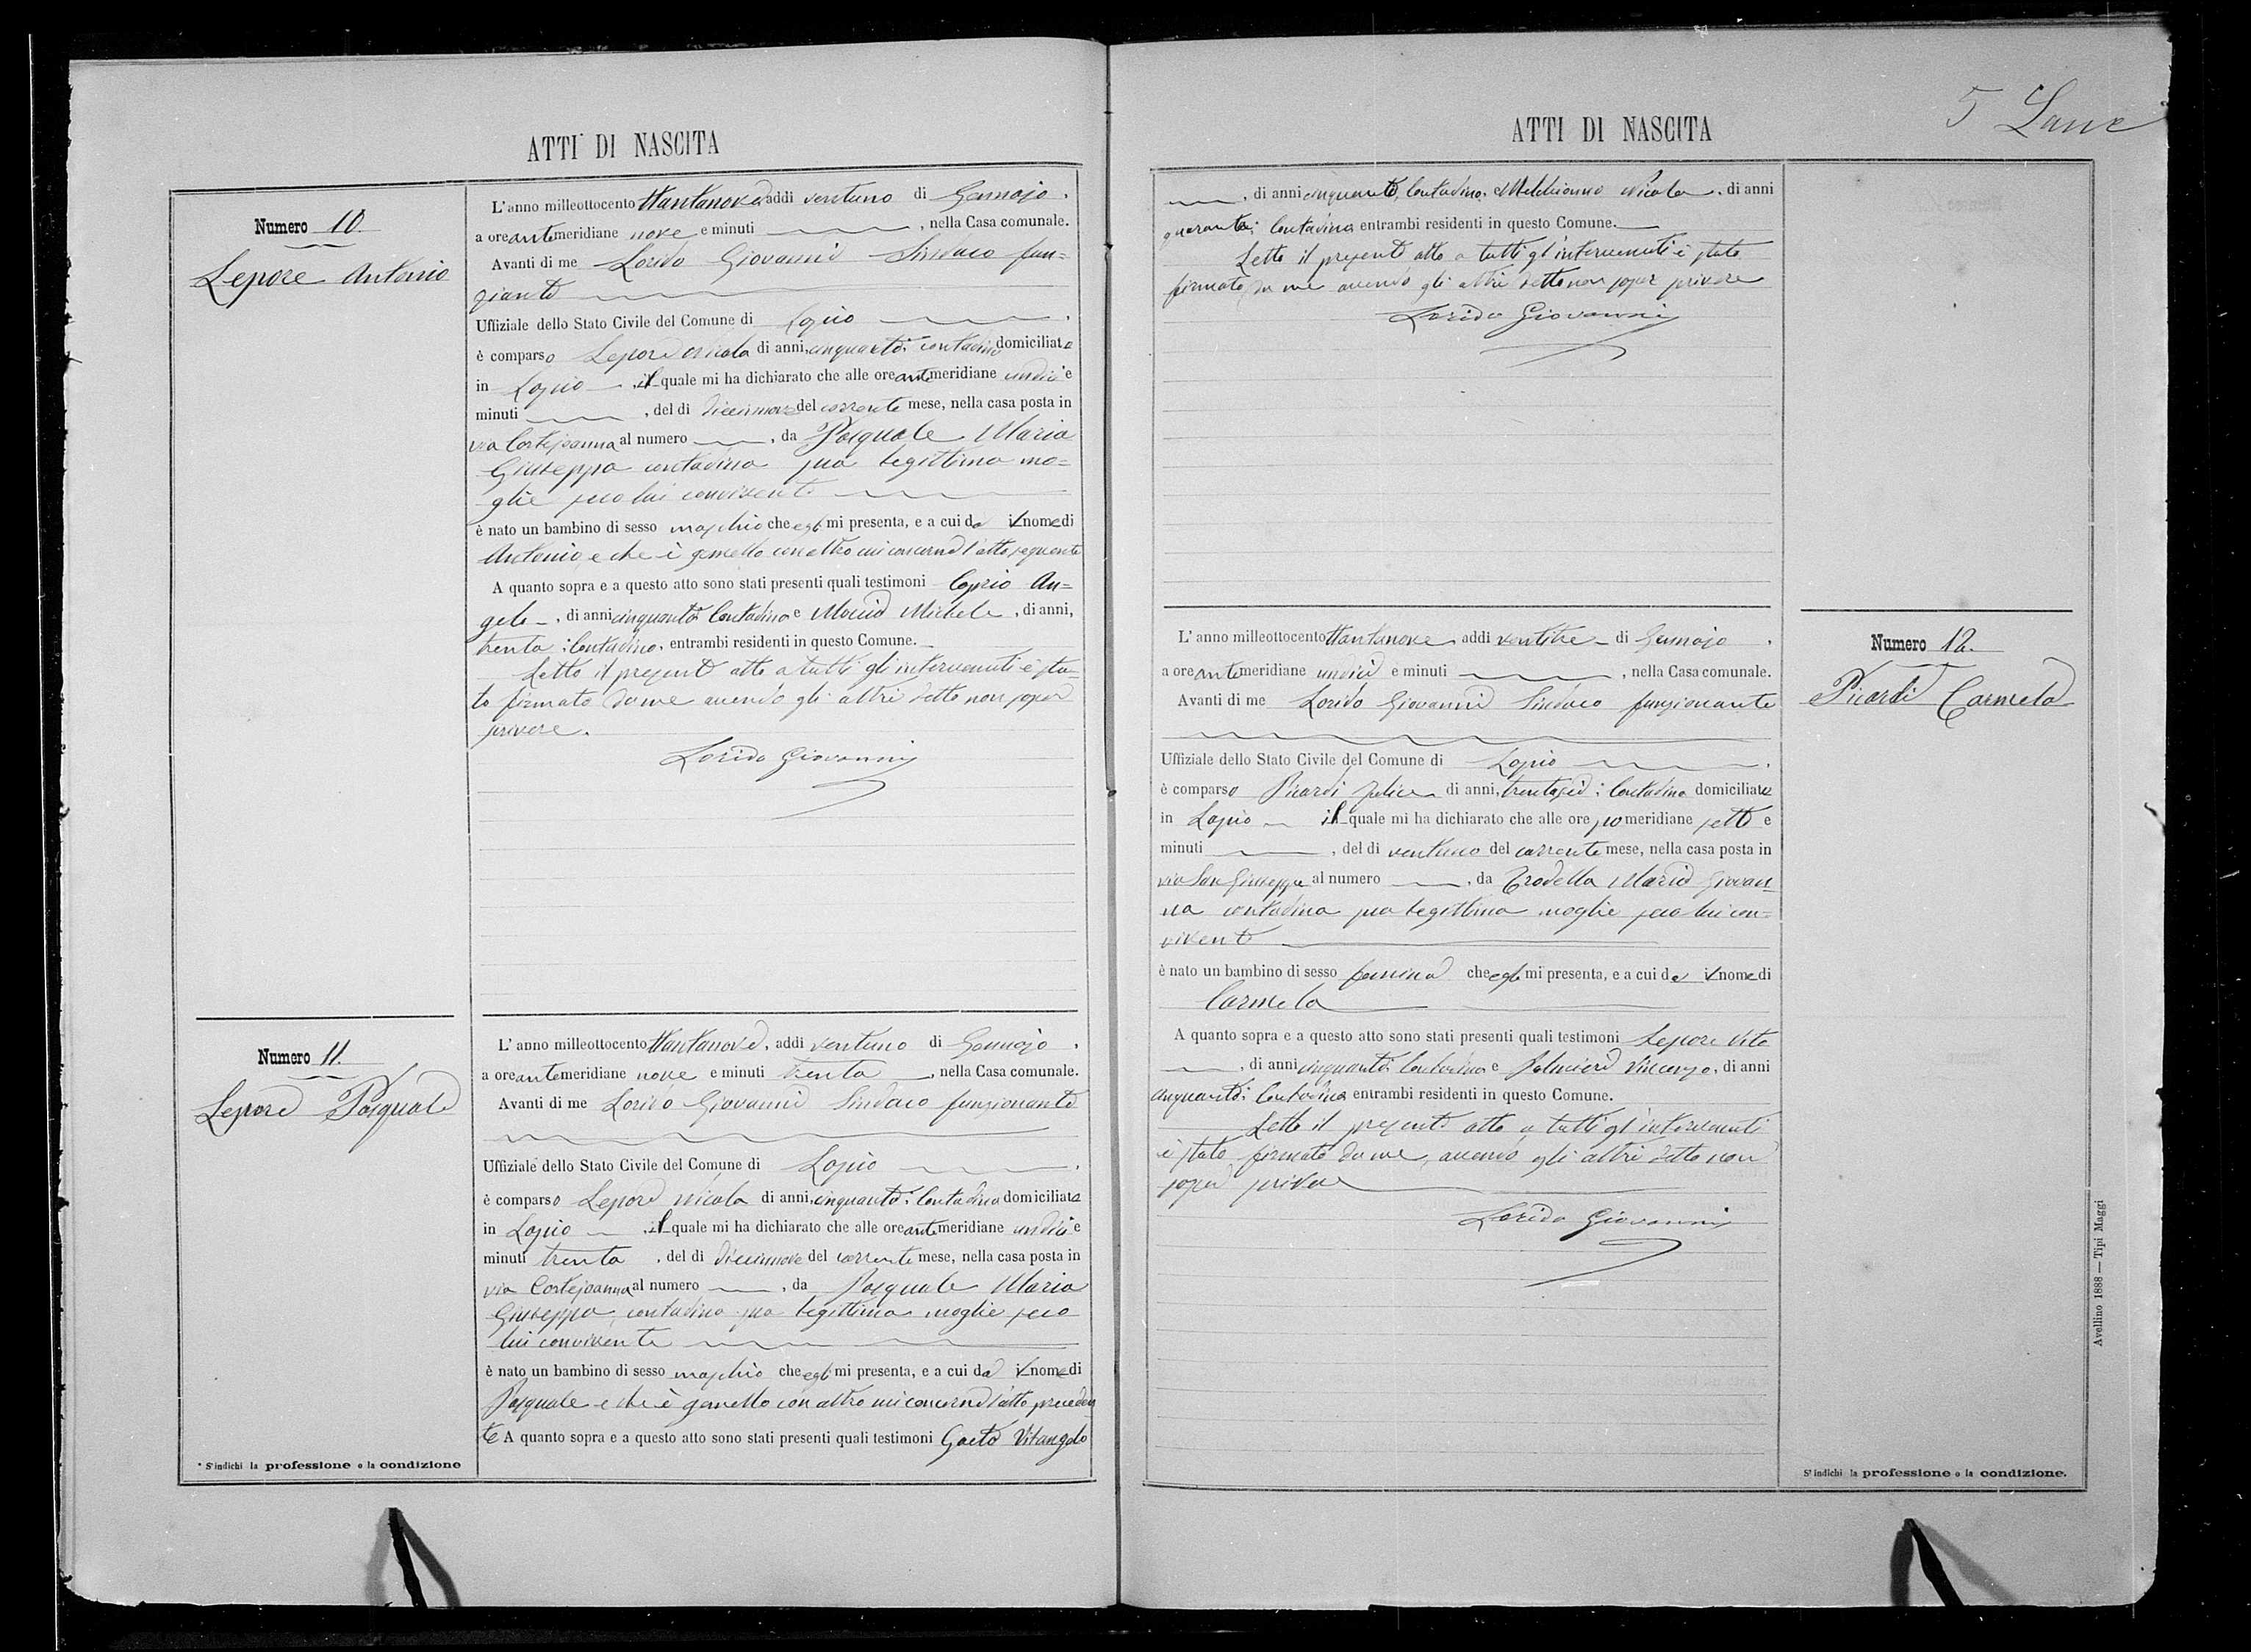 ATTI DI NASCITA
Numero 10.
Lepore Antonio
L'anno milleottocento ottantanove, addì ventuno di Gennajo,
a ore antemeridiane nove e minuti , nella Casa comunale.
Avanti di me Lorido Giovanni Sindaco fun=
zionante
Uffiziale dello Stato Civile del Comune di Lapio .
è comparso Lepore Nicola di anni cinquanta; contadino domiciliato
in Lapio , il quale mi ha dichiarato che alle ore antemeridiane undici e
minuti , del dì diecinnove del corrente mese, nella casa posta in
via Cortejoanna al numero , da Pasquale Maria
Giuseppa contadina sua legittima mo=
glie seco lui convivente
è nato un bambino di sesso maschio che egli mi presenta, e a cui dà il nome di
Antonio, e che è gemello con altro cui concerne l'atto seguente
A quanto sopra e a questo atto sono stati presenti quali testimoni Caprio An=
gelo , di anni cinquanta Contadino e Michele , di anni,
trenta ; Contadino, entrambi residenti in questo Comune.
Letto il presente atto a tutti gli intervenuti è sta=
to firmato da me avendo gli altri detto non saper
scrivere.
Lorido Giovanni
Numero 11.
Lepore Pasquale
L'anno milleottocento ottantanove, addì ventuno di Gennajo,
a ore antemeridiane nove e minuti trenta , nella Casa comunale.
Avanti di me Lorido Giovanni Sindaco funzionante
Uffiziale dello Stato Civile del Comune di Lapio .
è comparso Lepore Nicola di anni cinquanta; Contadino domiciliato
in Lapio , il quale mi ha dichiarato che alle ore antemeridiane undici e
minuti trenta , del dì diecinnove del corrente mese, nella casa posta in
via Cortejoanna al numero , da Pasquale Maria
Giuseppa, contadina sua legittima moglie seco
lui convivente
è nato un bambino di sesso maschio che egli mi presenta, e a cui dà il nome di
Pasquale e che è gemello con altro cui concerne l'atto preceden
te A quanto sopra e a questo atto sono stati presenti quali testimoni Gaeta Vitangelo
* S'indichi la professione o la condizione
ATTI DI NASCITA
5
, di anni cinquanta, Contadino, e Nicola , di anni
quaranta; Contadino entrambi residenti in questo Comune.
Letto il presente atto a tutti gl'intervenuti è stato
firmato da me avendo gli altri detto non saper scrivere
Lorido Giovanni
L'anno milleottocento ottantanove addì ventitre di Gennajo ,
a ore antemeridiane undici e minuti , nella Casa comunale.
Avanti di me Lorido Giovanni Sindaco funzionante
Uffiziale dello Stato Civile del Comune di Lapio .
è comparso Picardi Felice di anni, trentasei; Contadino domiciliato
in Lapio il quale mi ha dichiarato che alle ore pomeridiane sette e
minuti , del dì ventuno del corrente mese, nella casa posta in
via San Giuseppe al numero , da Trodella Maria Giovan=
na contadina sua legittima moglie seco lui con=
vivente
è nato un bambino di sesso femina che egli mi presenta, e a cui dà il nome di
Carmela
A quanto sopra e a questo atto sono stati presenti quali testimoni Lepore Vito
, di anni cinquanta; Contadino e Palmieri Vincenzo, di anni
cinquanta; Contadino entrambi residenti in questo Comune.
Letto il presente atto a tutti gl'intervenuti
è stato firmato da me, avendo gli altri detto non
saper scrivere
Lorido Giovanni
Numero 12.
Picardi Carmela
S'indichi la professione o la condizione.
Avellino 1888 — Tipi Maggi